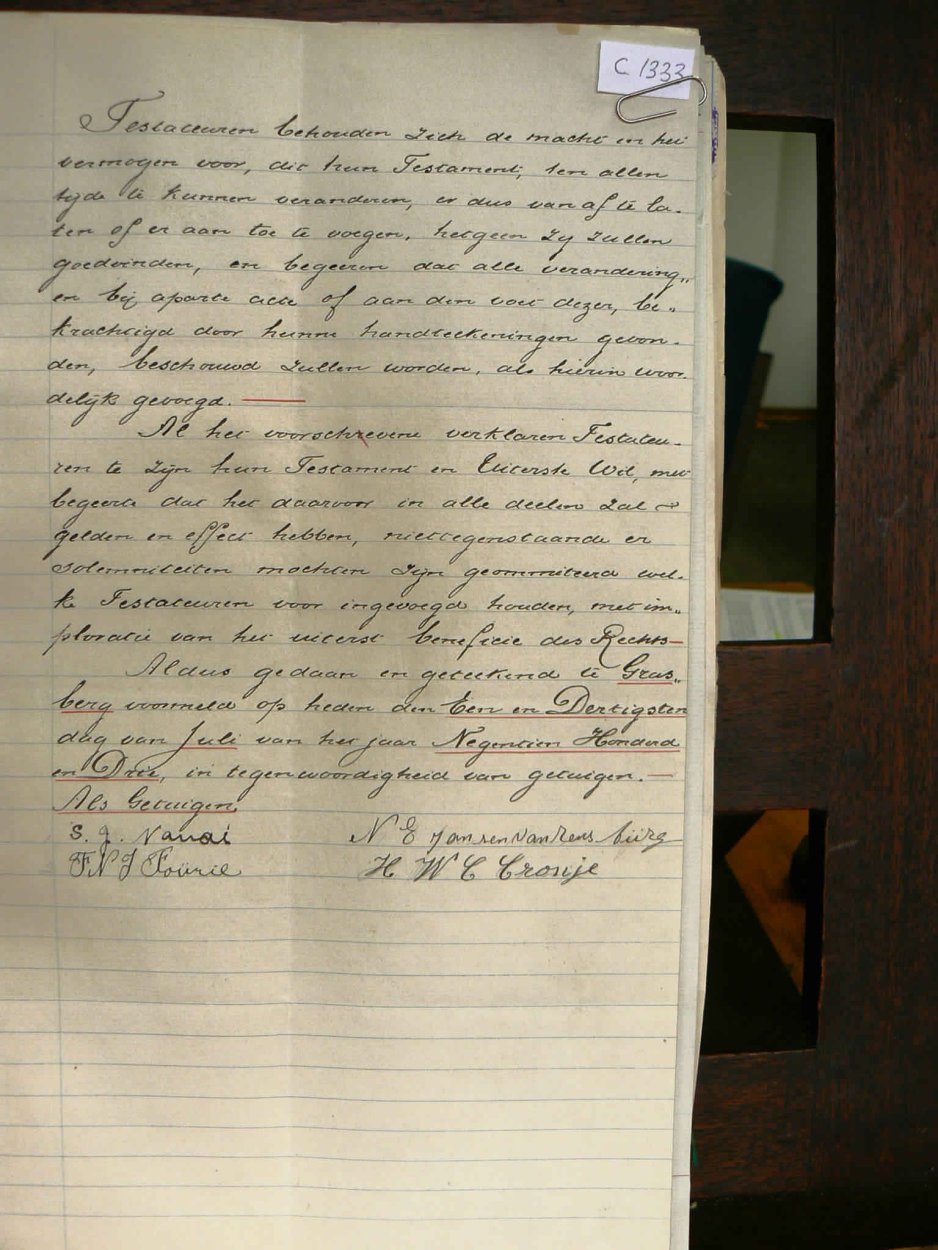 C 1333
Testateuren behouden zich de macht en het
vermogen voor, dit hun Testament, ten allen
tyde te kunnen veranderen, er dus van af te la-
ten of er aan toe te voegen, hetgeen zy zullen
goedvinden, en begeeren dat alle verandering„
en bij aparte acte of aan den voet dezer, be„
krachtigd door hunne handteekeningen gevon-
den, beschouwd zullen worden, als hierin woor-
delijk gevoegd. —
Al het voorschrevene verklaren Testateu-
ren te zijn hun Testament en Uiterste Wil, met
begeerte dat het daarvoor in alle deelen zal
gelden en effect hebben, niettegenstaande er
solemniteiten mochten zijn geommiteerd wel-
ke Testateuren voor ingevoegd houden, met im„
ploratie van het uiterst beneficie des Rechts—
Aldus gedaan en geteekend te Gras„
berg voormeld op heden den Een en Dertigsten
dag van Juli van het jaar Negentien Honderd
en Drie, in tegenwoordigheid van getuigen. —
Als Getuigen
S. J. N E Jansen van Rensbürg
F N J Fourie H W C Cronje